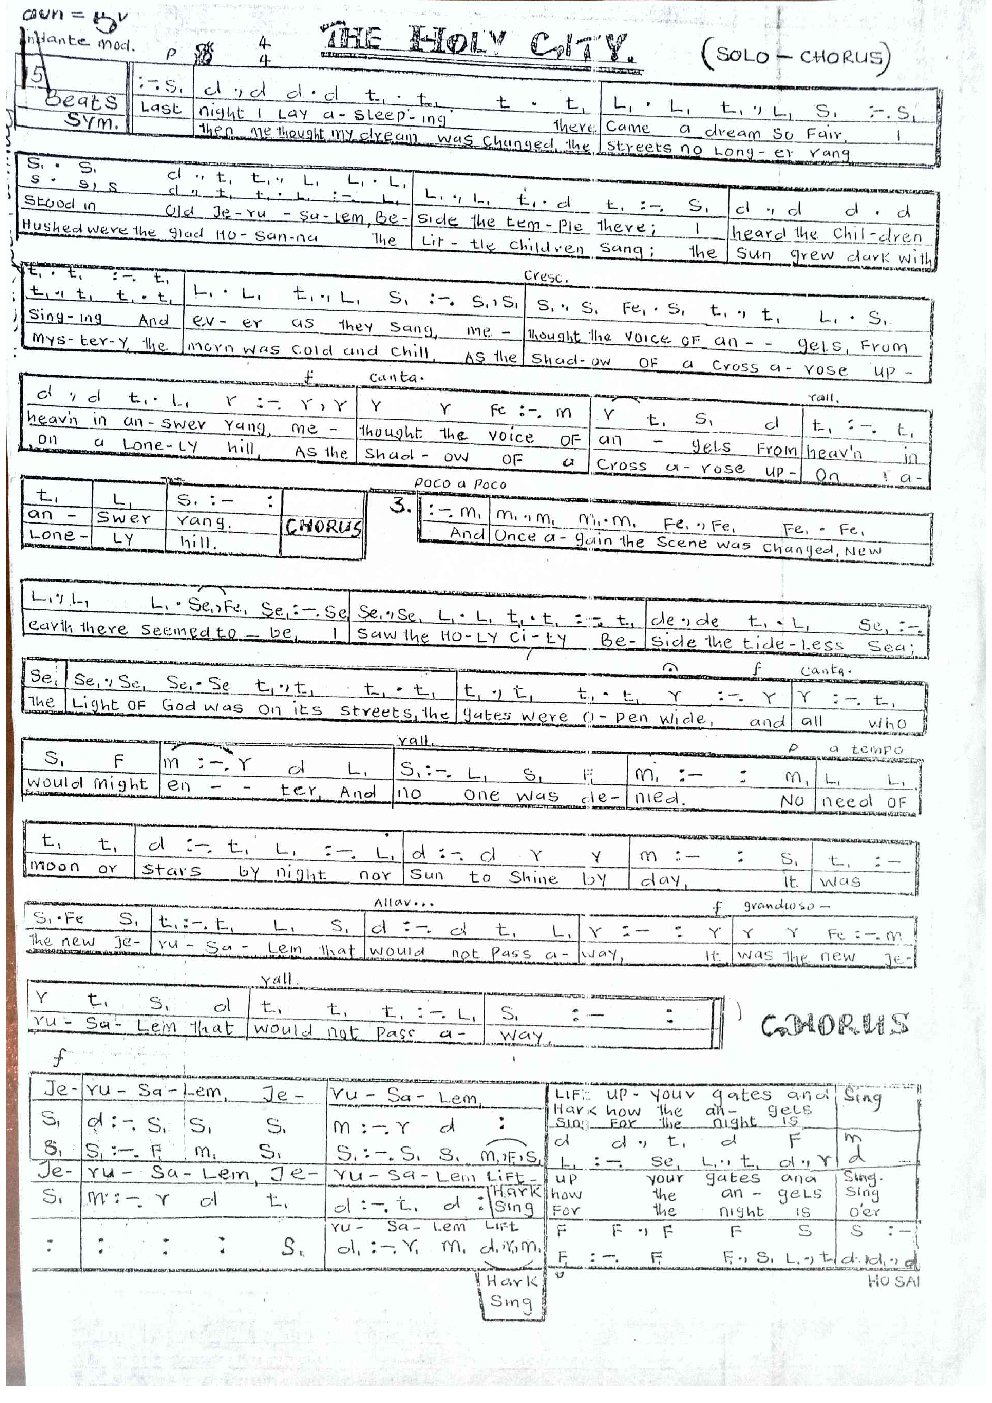 THE HOLY CITY.
(SOLO – CHORUS)
andante mod. P 4
4
15 Beats SYM.
:-. S, d ., d d . d t, . t, t . t, L, . L, t, ., L, S, :-. S,
Last night I Lay a-sleep-ing there Came a dream So Fair, I
then me thought my dream was changed, the streets no Long-er rang
S, . S, d ., t, t, ., L, L, . L,
S . S, S d ., t, t, . L, :-. L, L, ., L, t, . d t, :-. S, d ., d d . d
Stood in Old Je-ru-Sa-Lem, Be-side the tem-ple there; I heard the chil-dren
Hushed were the glad Ho-san-na the Lit-tle children sang; the Sun grew dark with
Cresc.
t, . t, :-. t,
t, ., t, t, . t, L, . L, t, ., L, S, :-. S, ., S, S, ., S, Fe, . S, t, ., t, L, . S,
Sing-ing And ev-er as they sang, me-thought the voice OF an-- gels, From
mys-ter-y, the morn was cold and chill, As the Shad-ow OF a cross a-rose up-
f canta.
rall.
d ., d t, . L, r :-. r, r r r Fe :-. m r t, S, d t, :-. t,
heav'n in an-swer rang, me-thought the voice OF an-gels From heav'n in
on a Lone-LY hill, As the Shad-ow OF a Cross a-rose up-On a-
t, L, S, :- :
an-swer rang.
Lone-LY hill.
CHORUS
poco a poco
3. :-. m, m, ., m, m, . m, Fe, ., Fe, Fe, . Fe,
And Once a-gain the Scene was changed, New
L, ., L, L, . Se, ., Fe, Se, :-. Se Se, ., Se, L, . L, t, . t, :-. t, de ., de t, . L, Se, :-.
earth there seemed to – be, I Saw the HO-LY Ci-ty Be-side the tide-less Sea;
f canta.
Se, Se, ., Se, Se, . Se t, ., t, t, . t, t, ., t, t, . t, r :-. r r :-. t,
The Light OF God was on its Streets, the gates were O-pen wide, and all who
rall.
P a tempo
S, F m :-. r d L, S, :-. L, S, F, m, :- : m, L, L,
would might en-- ter, And no one was de-nied. No need OF
t, t, d :-. t, L, :-. L, d :-. d r r m :- : S, t, :-
moon or Stars by night nor Sun to Shine by day, it was
Allar...
f grandioso –
S, . Fe S, t, :-. t, L, S, d :-. d t, L, r :- : r r r Fe :-. m
the new Je-ru-Sa-Lem that would not pass a-way, It was the new Je-
rall.
r t, S, d t, t, t, :-. L, S, :- :
ru-Sa-Lem that would not Pass a-way,
CHORUS
f
Je-ru-Sa-Lem, Je-ru-Sa-Lem, LIFT up-your gates and Sing
Hark how the an-gels
Sing For the night is
S, d :-. S, S, S, m :-. r d : d d ., t, d F m
S, S, :-. F, m, S, S, :-. S, S, m, ., F, ., S, L, :-. Se, L, ., t, d ., r d
Je-ru-Sa-Lem, Je-ru-Sa-Lem LIFT up your gates and Sing.
Hark how the an-gels Sing
Sing For the night is o'er
S, m :-. r d t, d :-. t, d : F F ., F F S S :-
ru-Sa-Lem LIFT
: : : : S, d, :-. r, m, d, r, m, F, :-. F, F, ., S, L, ., t, d
Hark
Sing
HO SAN